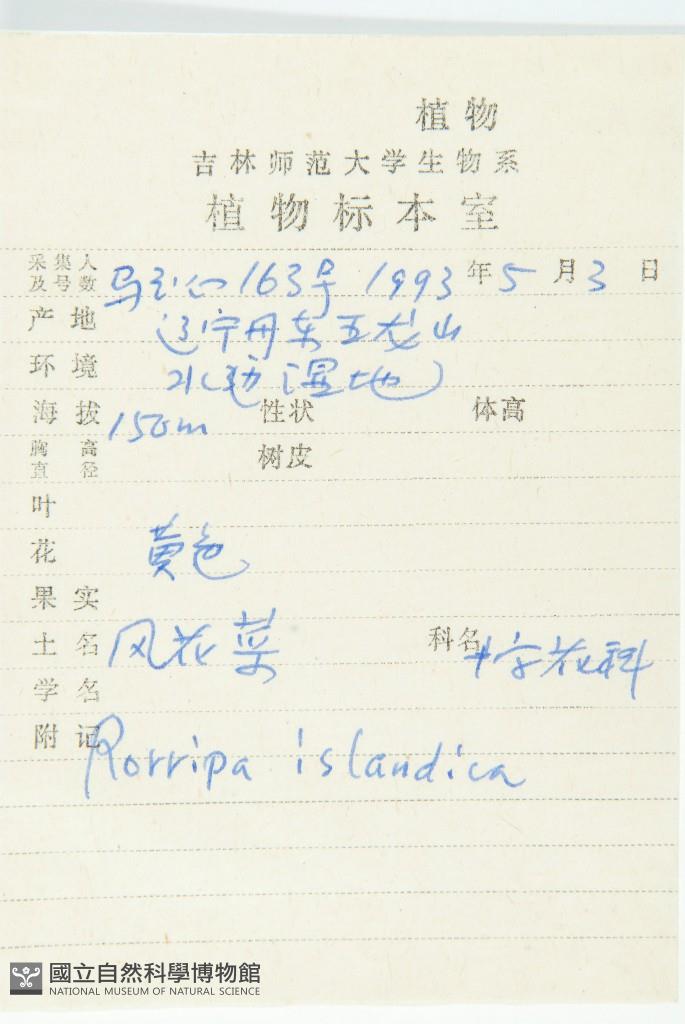 植物
吉林师范大学生物系
植物标本室
采集人及号数 马 163号 1993年5月3日
产地 辽宁丹东五龙山
环境 水边湿地
海拔 150m 性状 体高
胸高直径 树皮
叶
花 黄色
果实
土名 风花菜 科名 十字花科
学名
附记 Rorripa islandica
國立自然科學博物館
NATIONAL MUSEUM OF NATURAL SCIENCE